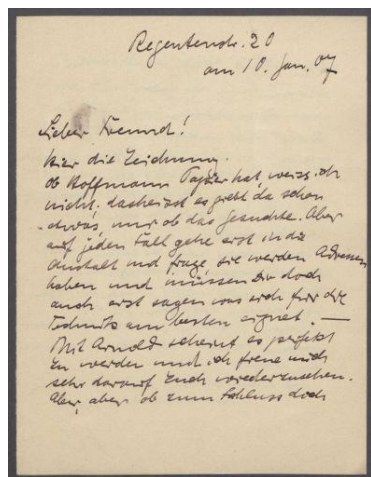 Regentenstr. 20
am 10. Jan. 07
Lieber Freund!
hier die Zeichnung.
ob Hoffmann Papier hat, weiss ich
nicht. das heisst es giebt da schon
etwas, nur ob das Gesuchte. Aber
auf jeden Fall gehe erst in die
Anstalt und frage sie werden Adressen
haben und müssen Dir doch
auch erst sagen was sich für die
Technik am besten eignet. —
Mit Arnold scheint es perfekt
zu werden und ich freue mich
sehr darauf Euch wiederzusehen.
Aber, aber ob zum Schluss doch